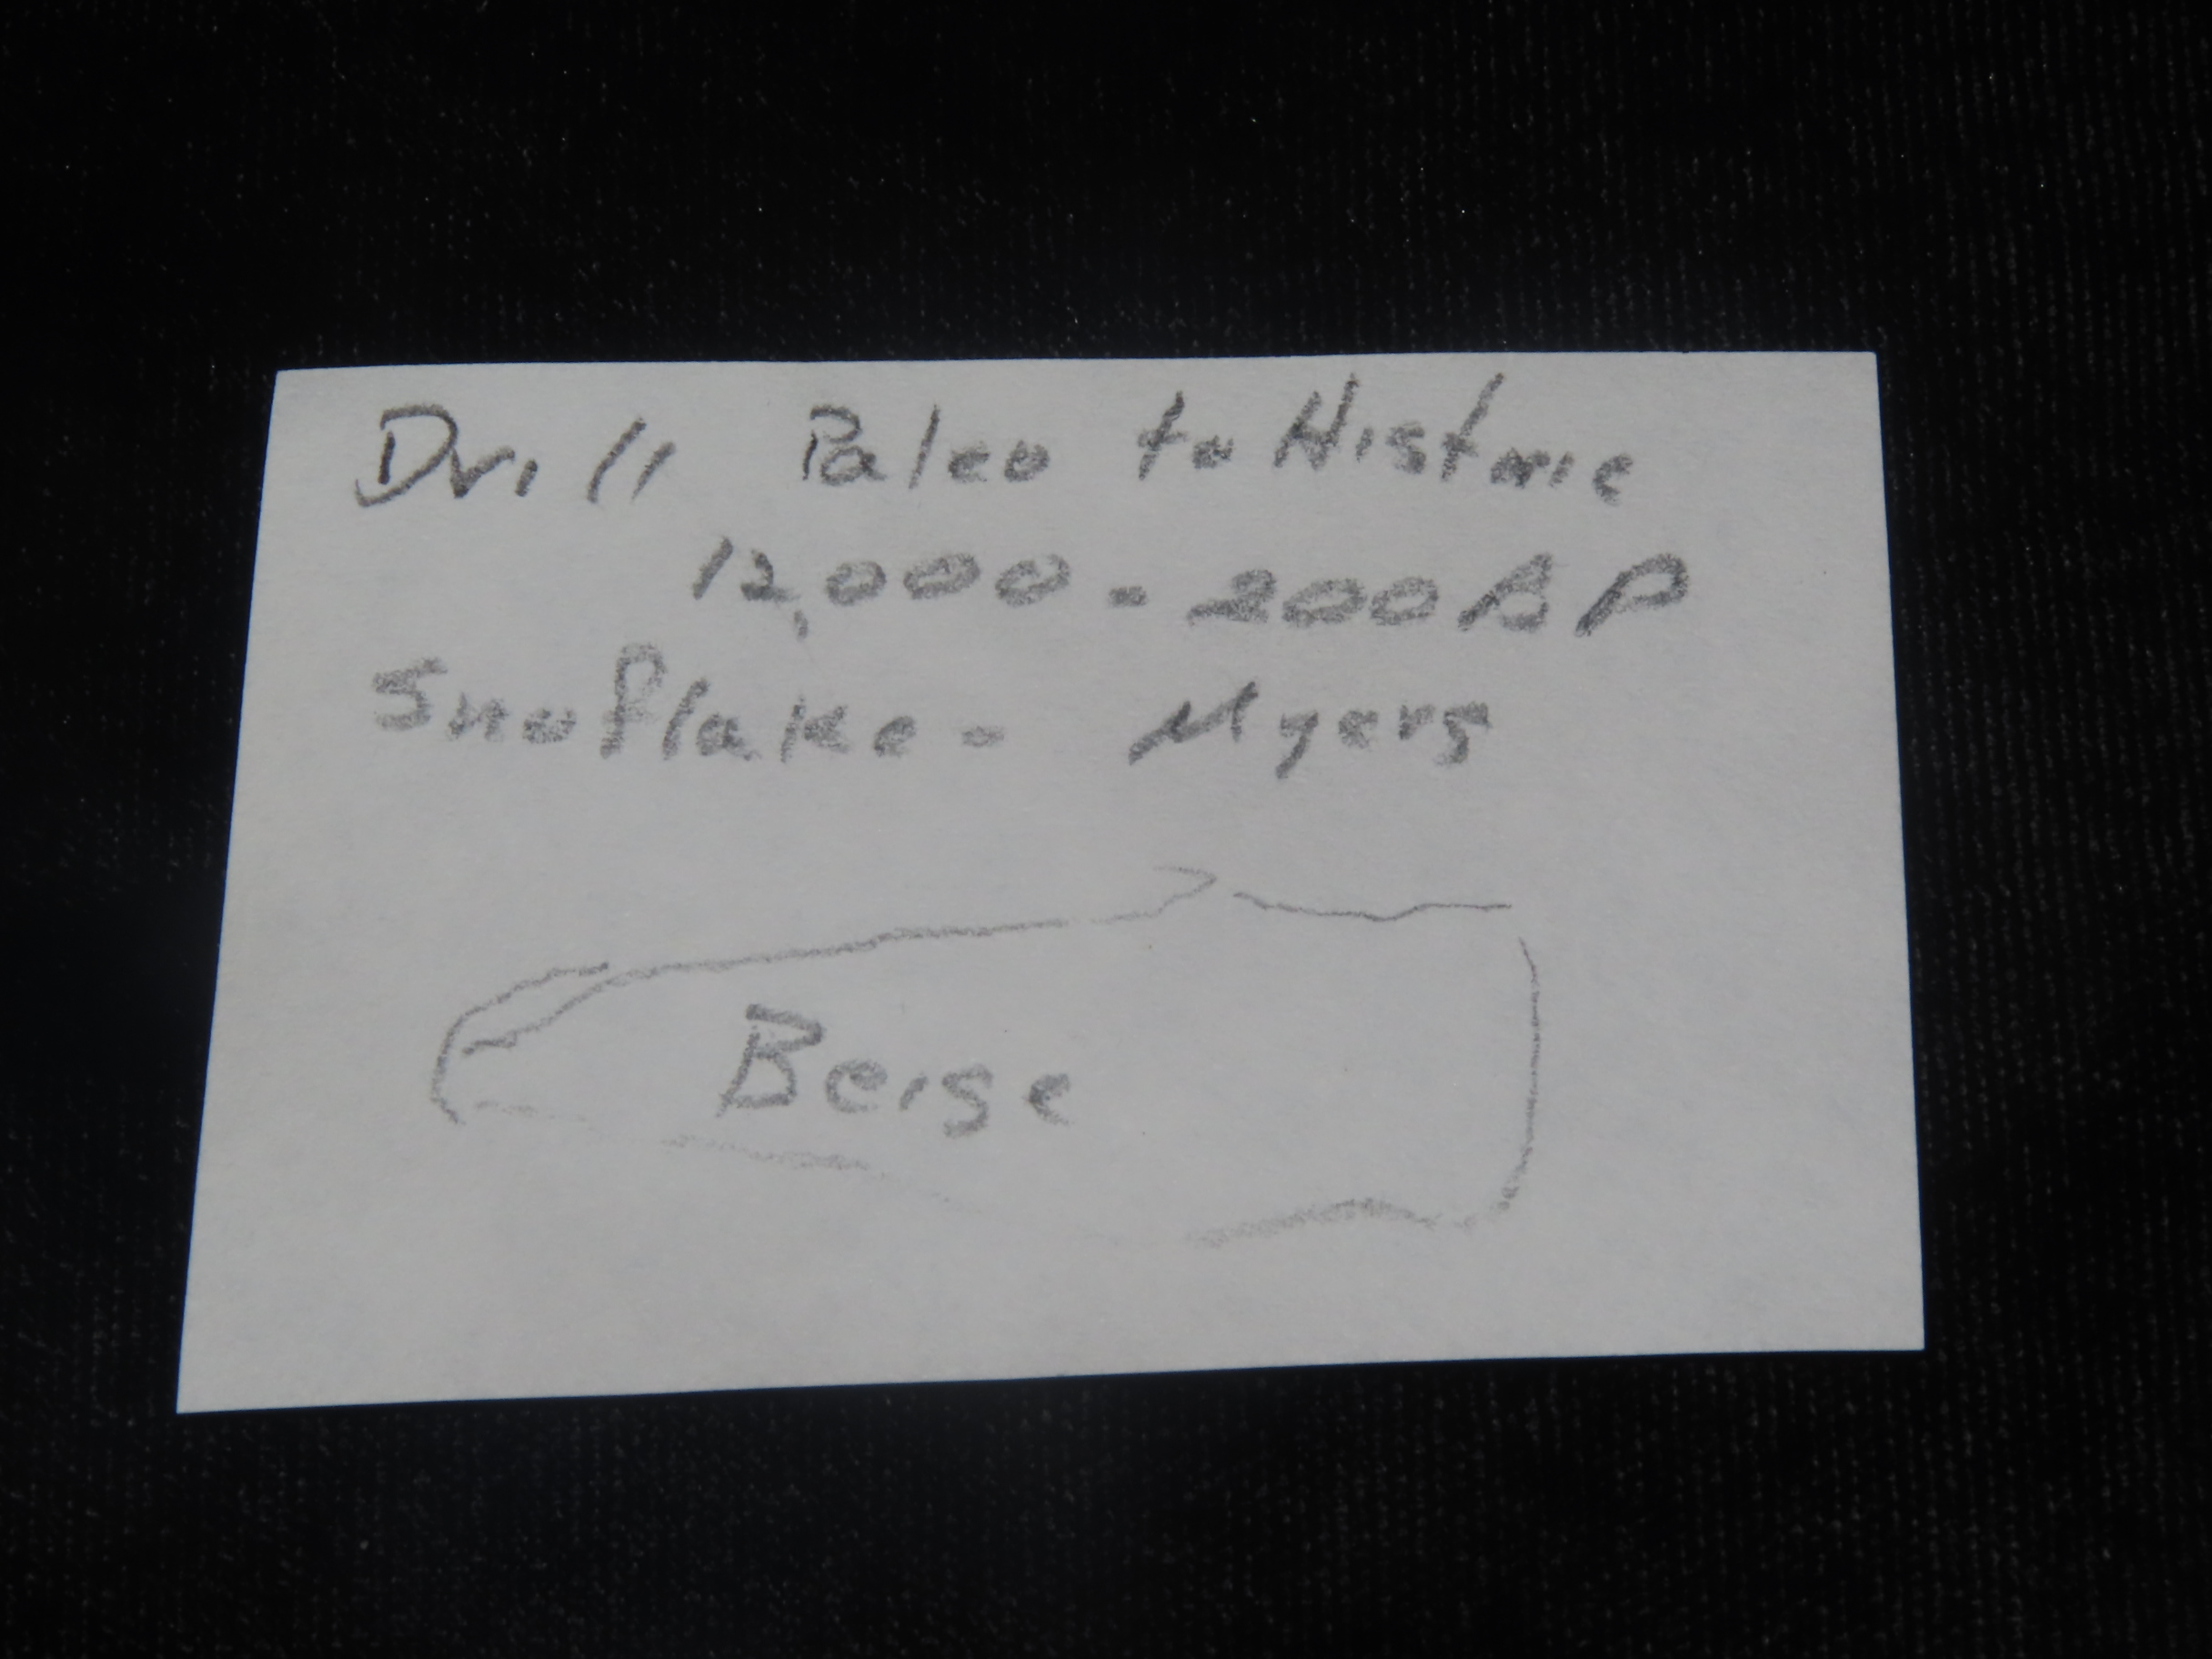 Drill Paleo to Historic
12,000 - 200 BP
Snoflake - Myers
Beige